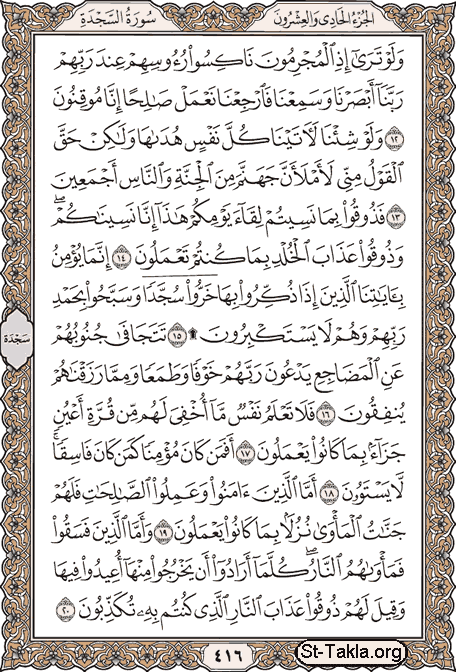 الجُزْءُ الحَادِى وَالعِشْرُونَ
سُورَةُ السَّجْدَةِ
وَلَوْ تَرَىٰٓ إِذِ ٱلْمُجْرِمُونَ نَاكِسُوا۟ رُءُوسِهِمْ عِندَ رَبِّهِمْ
رَبَّنَآ أَبْصَرْنَا وَسَمِعْنَا فَٱرْجِعْنَا نَعْمَلْ صَٰلِحًا إِنَّا مُوقِنُونَ
١٢ وَلَوْ شِئْنَا لَءَاتَيْنَا كُلَّ نَفْسٍ هُدَىٰهَا وَلَٰكِنْ حَقَّ
ٱلْقَوْلُ مِنِّى لَأَمْلَأَنَّ جَهَنَّمَ مِنَ ٱلْجِنَّةِ وَٱلنَّاسِ أَجْمَعِينَ
١٣ فَذُوقُوا۟ بِمَا نَسِيتُمْ لِقَآءَ يَوْمِكُمْ هَٰذَآ إِنَّا نَسِينَٰكُمْ ۖ
وَذُوقُوا۟ عَذَابَ ٱلْخُلْدِ بِمَا كُنتُمْ تَعْمَلُونَ ١٤ إِنَّمَا يُؤْمِنُ
بِـَٔايَٰتِنَا ٱلَّذِينَ إِذَا ذُكِّرُوا۟ بِهَا خَرُّوا۟ سُجَّدًا وَسَبَّحُوا۟ بِحَمْدِ
رَبِّهِمْ وَهُمْ لَا يَسْتَكْبِرُونَ ۩ ١٥ تَتَجَافَىٰ جُنُوبُهُمْ
سَجْدَة
عَنِ ٱلْمَضَاجِعِ يَدْعُونَ رَبَّهُمْ خَوْفًا وَطَمَعًا وَمِمَّا رَزَقْنَٰهُمْ
يُنفِقُونَ ١٦ فَلَا تَعْلَمُ نَفْسٌ مَّآ أُخْفِىَ لَهُم مِّن قُرَّةِ أَعْيُنٍ
جَزَآءًۢ بِمَا كَانُوا۟ يَعْمَلُونَ ١٧ أَفَمَن كَانَ مُؤْمِنًا كَمَن كَانَ فَاسِقًا ۚ
لَّا يَسْتَوُۥنَ ١٨ أَمَّا ٱلَّذِينَ ءَامَنُوا۟ وَعَمِلُوا۟ ٱلصَّٰلِحَٰتِ فَلَهُمْ
جَنَّٰتُ ٱلْمَأْوَىٰ نُزُلًۢا بِمَا كَانُوا۟ يَعْمَلُونَ ١٩ وَأَمَّا ٱلَّذِينَ فَسَقُوا۟
فَمَأْوَىٰهُمُ ٱلنَّارُ ۖ كُلَّمَآ أَرَادُوٓا۟ أَن يَخْرُجُوا۟ مِنْهَآ أُعِيدُوا۟ فِيهَا
وَقِيلَ لَهُمْ ذُوقُوا۟ عَذَابَ ٱلنَّارِ ٱلَّذِى كُنتُم بِهِۦ تُكَذِّبُونَ ٢٠
٤١٦
St-Takla.org